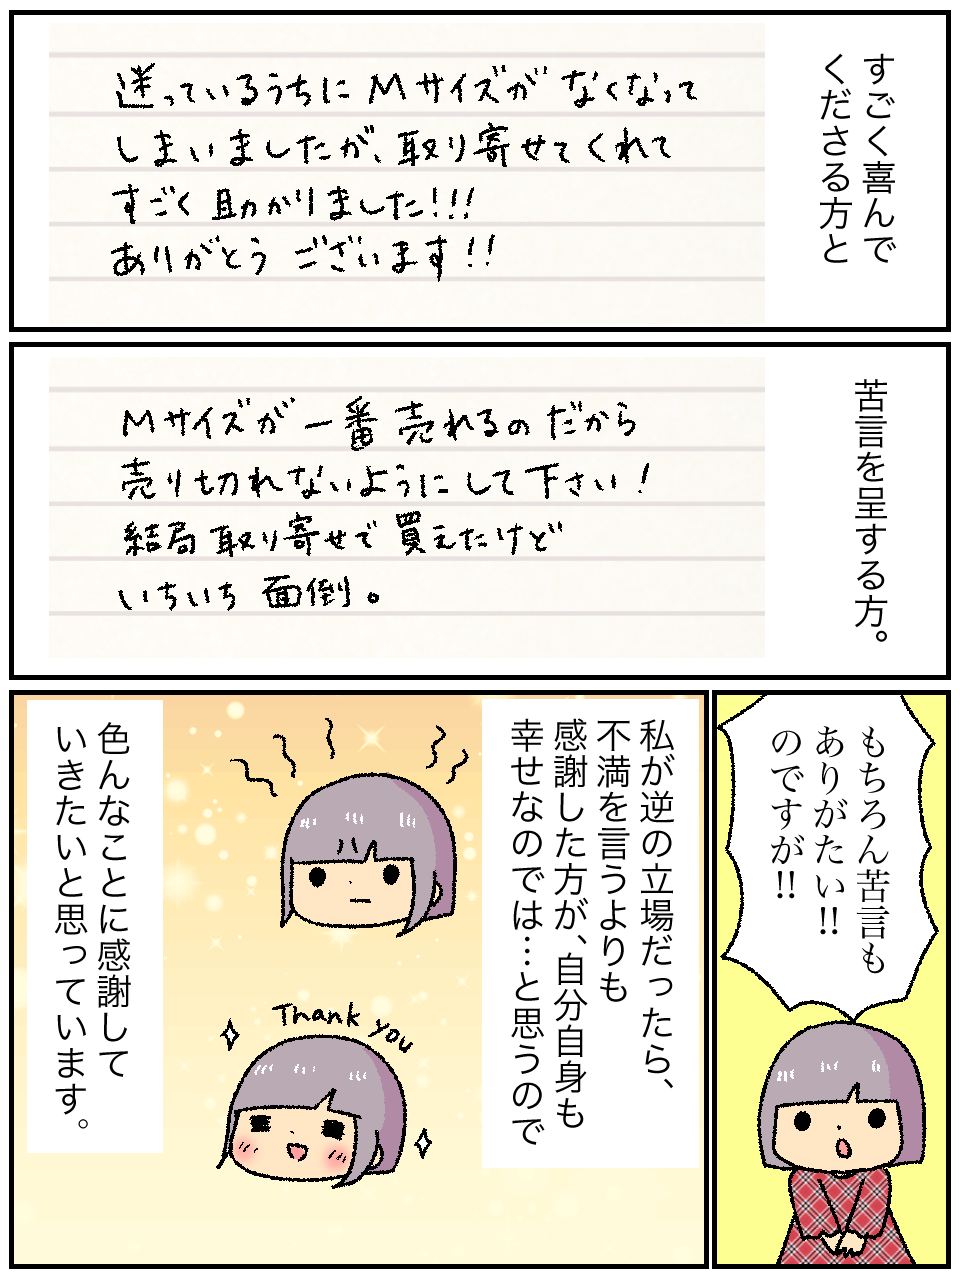 すごく喜んで
くださる方と
迷っているうちにMサイズがなくなって
しまいましたが、取り寄せてくれて
すごく助かりました!!!
ありがとうございます!!
苦言を呈する方。
Mサイズが一番売れるのだから
売り切れないようにして下さい!
結局取り寄せで買えたけど
いちいち面倒。
もちろん苦言も
ありがたい!!
のですが!!
私が逆の立場だったら、
不満を言うよりも
感謝した方が、自分自身も
幸せなのでは…と思うので
Thank you
色んなことに感謝して
いきたいと思っています。